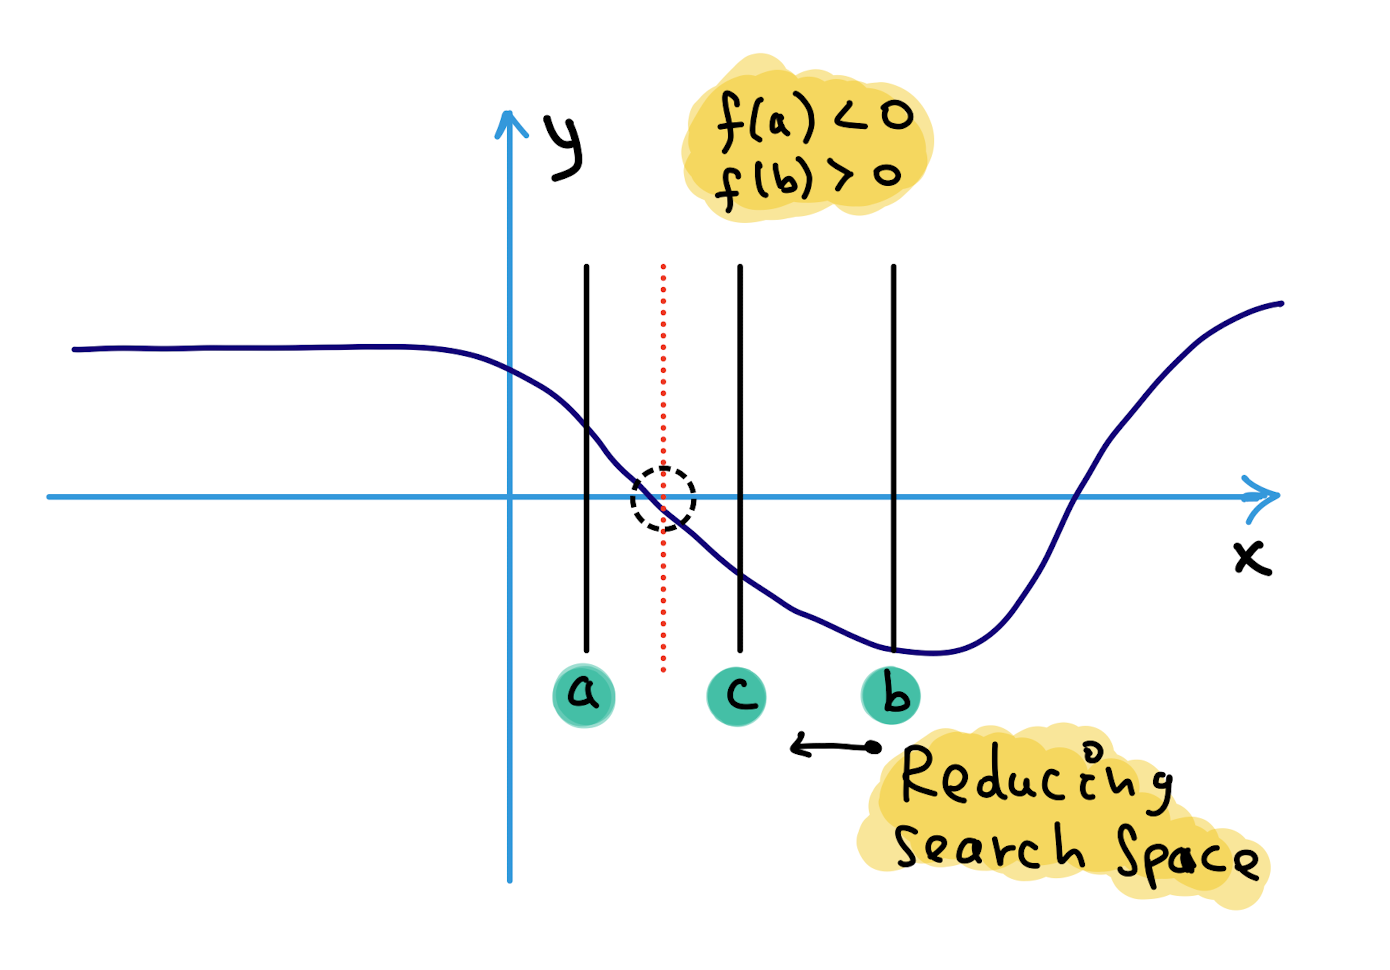 y
f(a) < 0
f(b) > 0
x
a
c
b
Reducing
search space